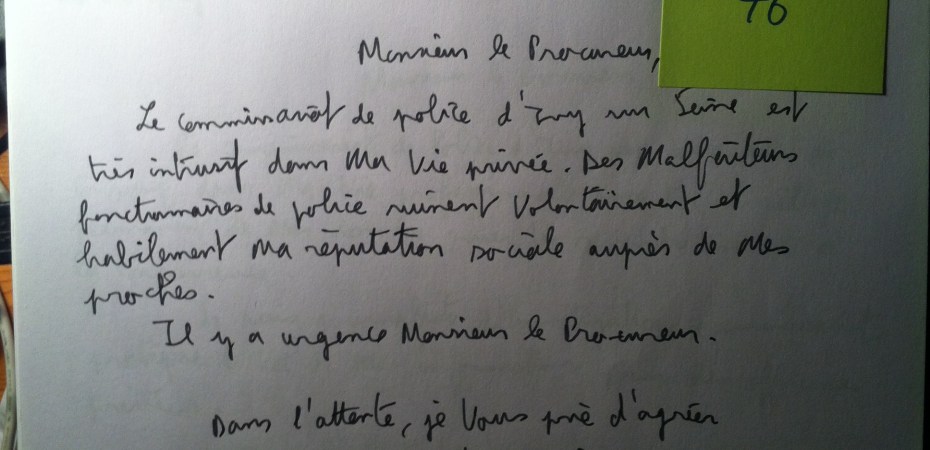 76
Monsieur le Procureur,
Le commissariat de police d'Ivry sur Seine est
très intrusif dans Ma Vie privée. Des Malfaiteurs
fonctionnaires de police ruinent Volontairement et
habilement Ma réputation sociale auprès de Mes
proches.
Il y a urgence Monsieur le Procureur.
Dans l'attente, je Vous prie d'agréer